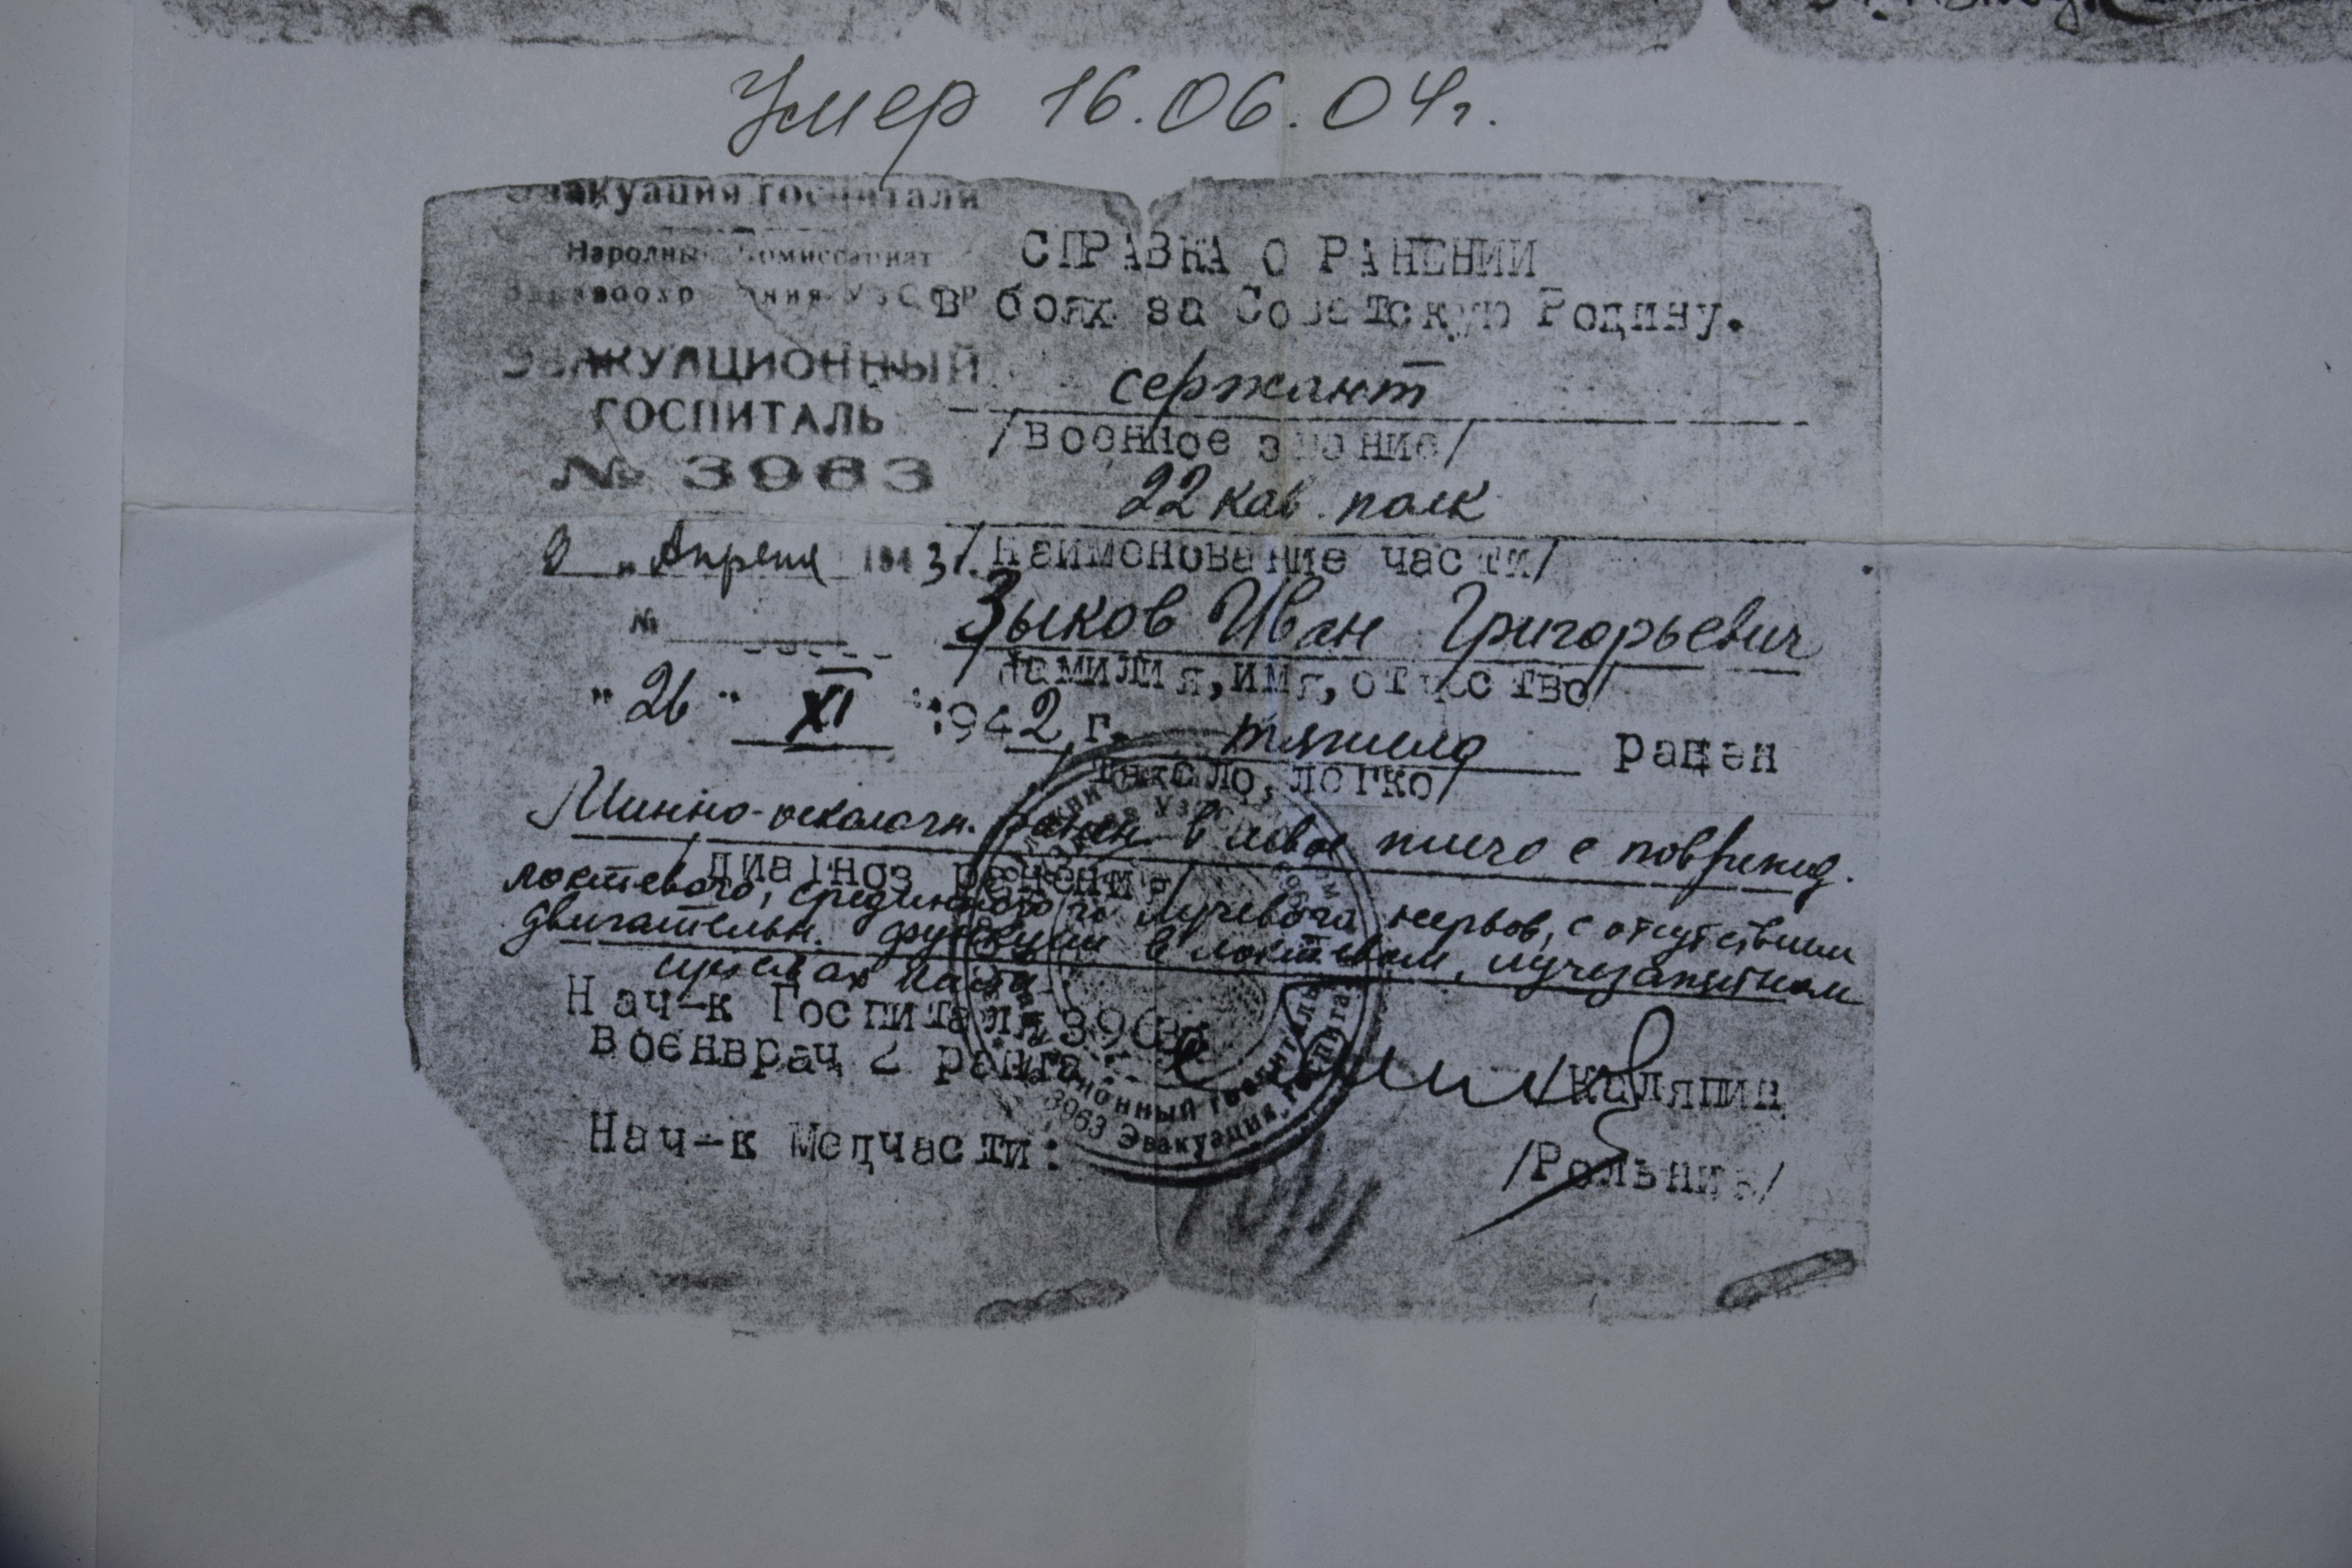 Умер 16.06.04г.
Эвакуация госпитали
Народный Комиссариат
Здравоохранения УзССР
ЭВАКУАЦИОННЫЙ
ГОСПИТАЛЬ
№ 3963
Апреля 1943
№
СПРАВКА О РАНЕНИИ
в боях за Советскую Родину.
сержант
/военное звание/
22 кав. полк
/наименование части/
Зыков Иван Григорьевич
/фамилия, имя, отчество/
"26" XI 1942 г. тяжело ранен
тяжело, легко/
Минно-осколочн. ранен. в левое плечо с поврежд.
/диагноз ранения/
локтевого, срединного и лучевого нервов, с отсутствием
двигательн. функции в локтевом, лучезапястном
Нач-к Госпиталя 3963
военврач 2 ранга /Каляпин
Нач-к Медчасти: /Рольник/
3963 Эвакуация